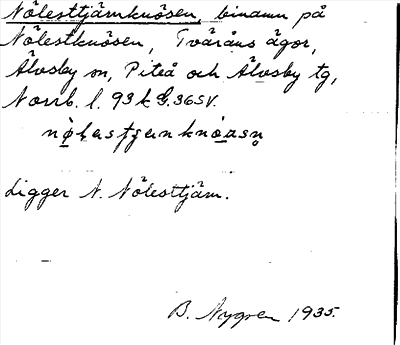 Nölesttjärnknösen, binamn på
Nölestknösen, Tväråns ägor,
Älvsby sn, Piteå och Älvsby tg,
Norrb. l. 93 k G.36SV.
Ligger N. Nölesttjärn.
B. Nygren 1935.